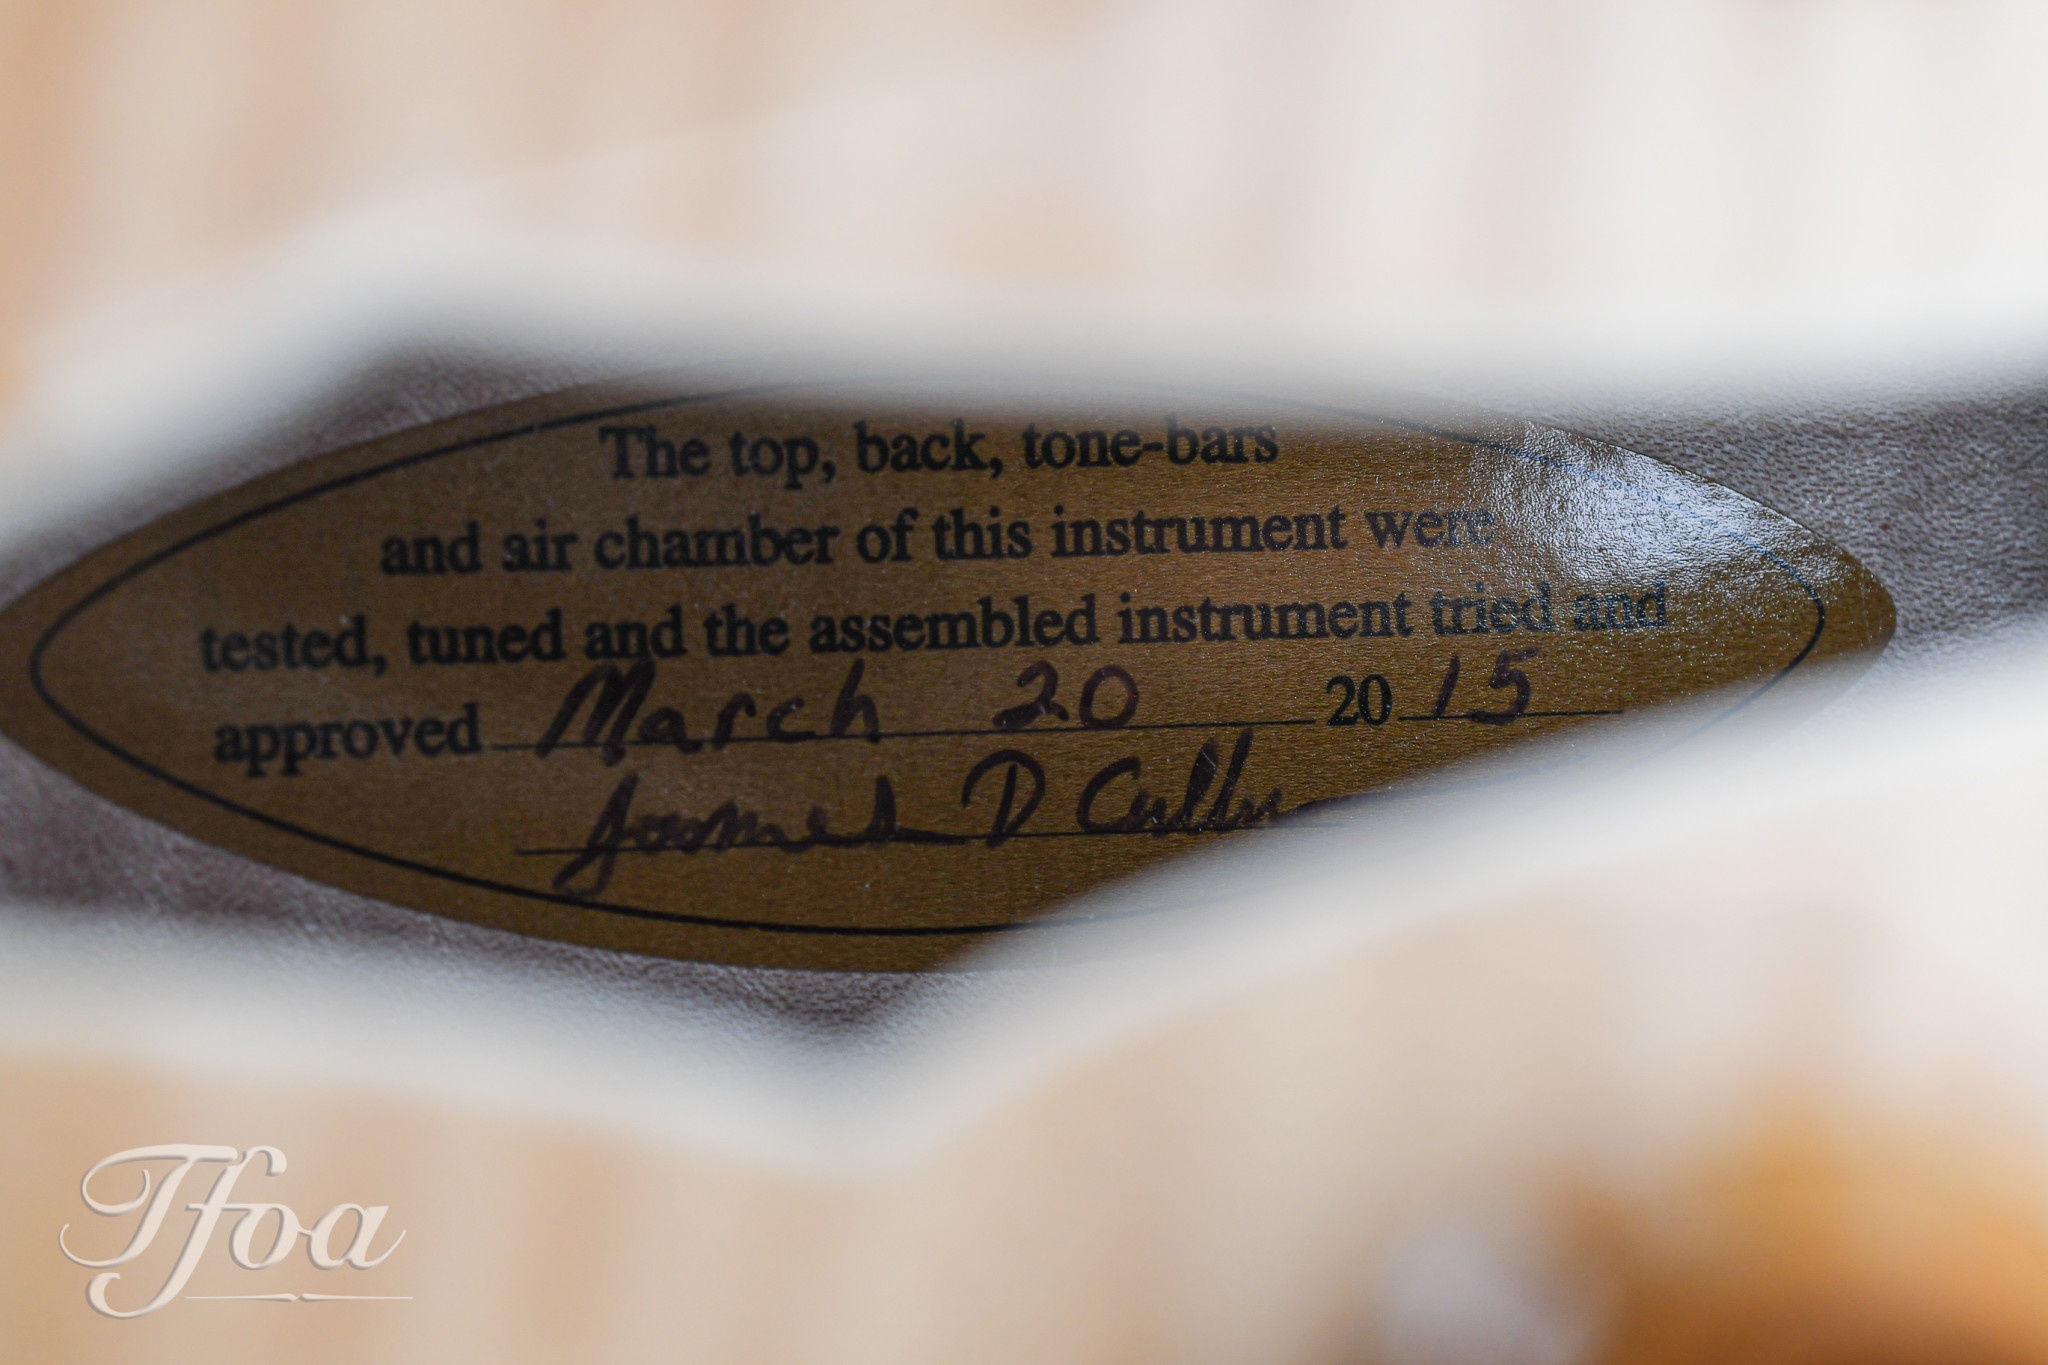 The top, back, tone-bars
and air chamber of this instrument were
tested, tuned and the assembled instrument tried and
approved March 20 2015
James D
Tfoa